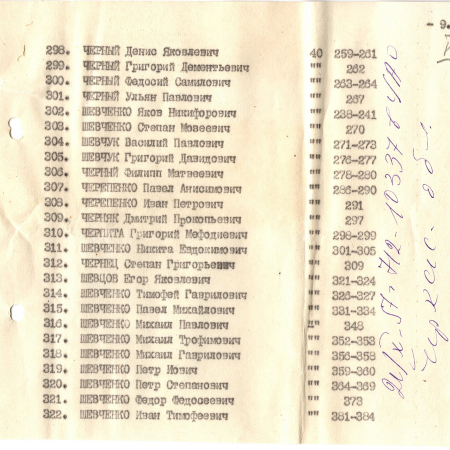 - 9.
298. ЧЕРНЫЙ Денис Яковлевич 40 259-261
299. ЧЕРНЫЙ Григорий Дементьевич "" 262
300. ЧЕРНЫЙ Федосий Самилович "" 263-264
301. ЧЕРНЫЙ Ульян Павлович "" 267
302. ШЕВЧЕНКО Яков Никифорович "" 238-241
303. ШЕВЧЕНКО Степан Мовеевич "" 270
304. ШЕВЧУК Василий Павлович "" 271-273
305. ШЕВЧУК Григорий Давидович "" 276-277
306. ЧЕРНЫЙ Филипп Матвеевич "" 278-280
307. ЧЕРЕПЕНКО Павел Анисимович "" 286-290
308. ЧЕРЕПЕНКО Иван Петрович "" 291
309. ЧЕРНЯК Дмитрий Прокопьевич "" 297
310. ЧЕРПИТА Григорий Мефодиевич "" 298-299
311. ШЕВЧЕНКО Никита Евдокимович "" 301-305
312. ЧЕРНЕЦ Степан Григорьевич "" 309
313. ШЕВЦОВ Егор Яковлевич "" 321-324
314. ШЕВЧЕНКО Тимофей Гаврилович "" 326-327
315. ШЕВЧЕНКО Павел Михайлович "" 331-334
316. ШЕВЧЕНКО Михаил Павлович "" 348
317. ШЕВЧЕНКО Михаил Трофимович "" 352-353
318. ШЕВЧЕНКО Михаил Гаврилович "" 356-358
319. ШЕВЧЕНКО Петр Иович "" 359-360
320. ШЕВЧЕНКО Петр Степанович "" 364-369
321. ШЕВЧЕНКО Федор Федосеевич "" 373
322. ШЕВЧЕНКО Иван Тимофеевич "" 381-384